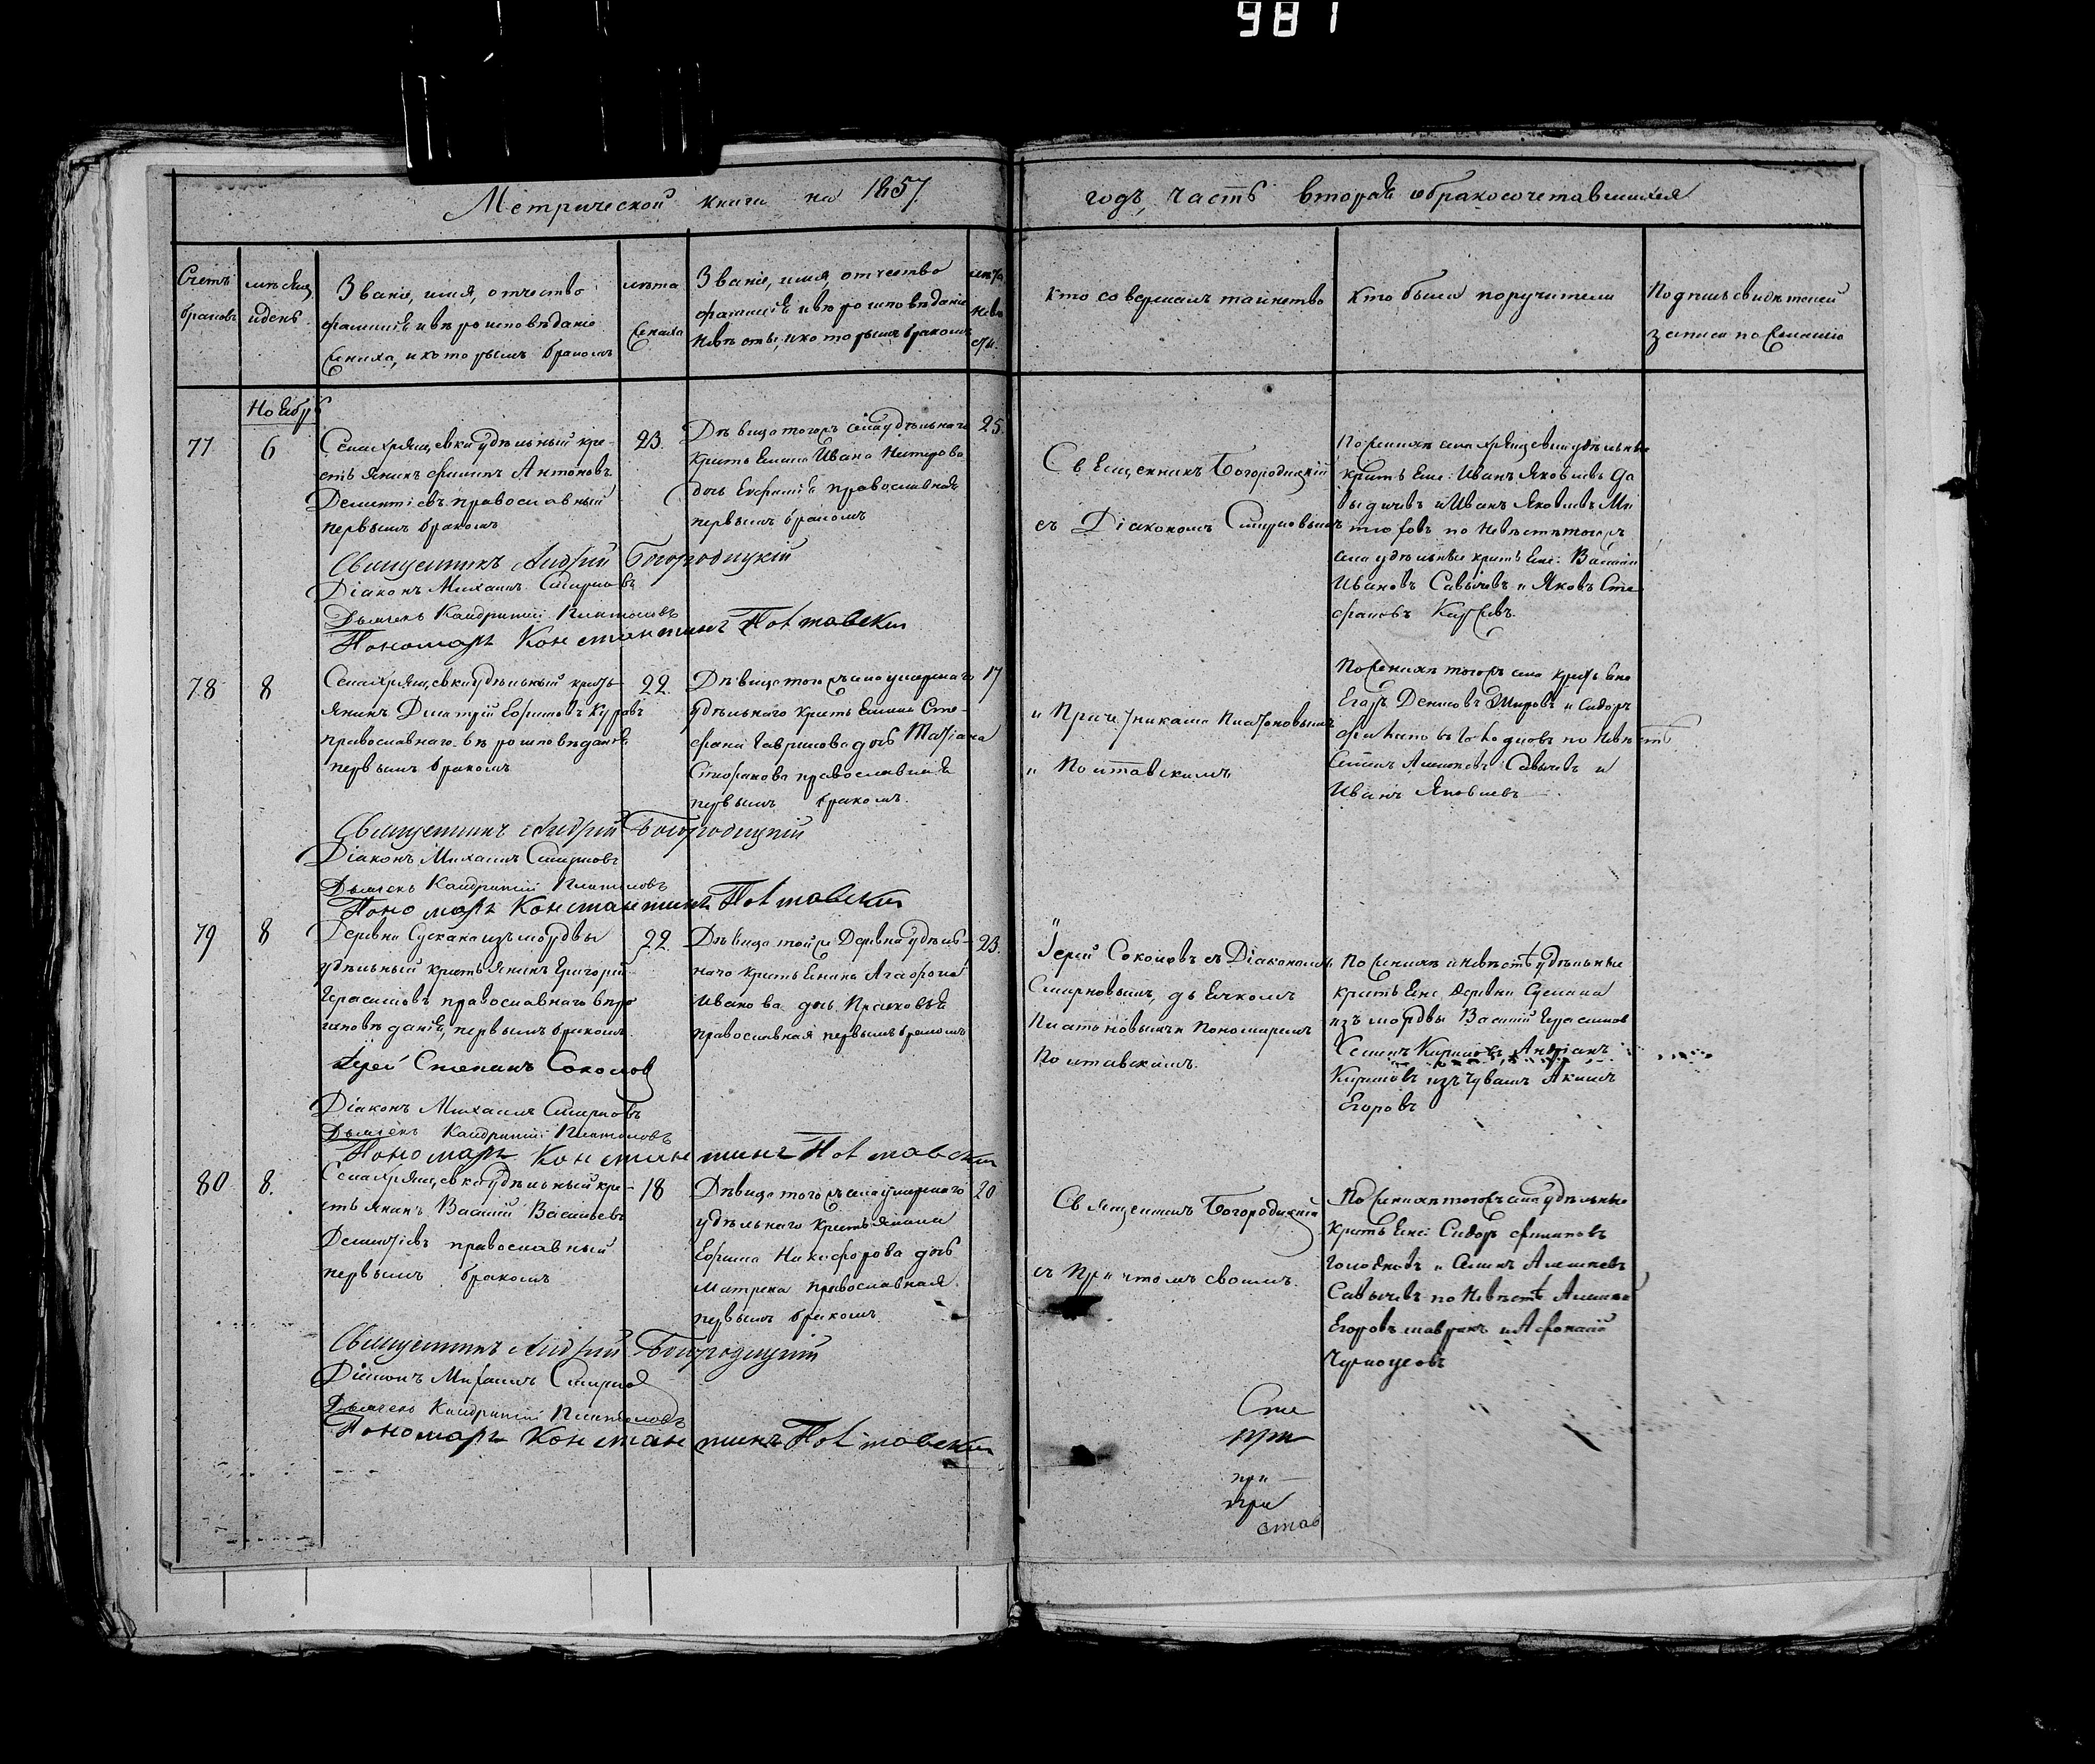 981
Метрической книги на 1857.
годъ, часть вторая о бракосочетавшихся
Счетъ
браковъ
мѣсяцъ
и день
Званіе, имя, отчество
фамилія и вѣроисповѣданіе
жениха, и которымъ бракомъ
лѣта
жениха
Званіе, имя, отчество
фамилія и вѣроисповѣданіе
невѣсты, и которымъ бракомъ
лѣта
невѣ
сты.
Кто совершалъ таинство
Кто были поручители
Подпись свидѣтелей
записи по желанію
Ноябрь
77
6
Села Хрящевки удѣльный кре-
стьянинъ Филипъ Антоновъ
Дементіевъ православный
первымъ бракомъ
23.
Дѣвица того жъ села удѣльнаго
крестьянина Ивана
дочь Евфимія православная
первымъ бракомъ
25.
Священникъ Богородицкій
съ Діакономъ Смирновымъ
По женихѣ села Хрящевки удѣльные
крестьяне: Иванъ Яковлевъ Да
выдычевъ и Иванъ Яковлевъ Ми
трофовъ по невѣстѣ того жъ
села удѣльные крестьяне: Василій
Ивановъ Савычевъ и Яковъ Сте
фановъ
Священникъ Андрей Богородицкій
Діаконъ Михаилъ Смирновъ
Дьячекъ Кандратій Платоновъ
Пономарь Константинъ Полтавскій
78
8
Села Хрящевки удѣльный кресть-
янинъ Дмитрій Ефимовъ Куровъ
православнаго вѣроисповѣданія
первымъ бракомъ
22.
Дѣвица того жъ села умершаго
удѣльнаго крестьянина Сте-
фана Гаврилова дочь Татіана
Стефанова православная
первымъ бракомъ.
17
" Причетниками Платоновымъ
" Полтавскимъ
По женихѣ того жъ села крестьяне
Егоръ Денисовъ и Сидоръ
по невѣстѣ
Семенъ Савычевъ и
Иванъ Яковлевъ
Священникъ Андрей Богородицкій
Діаконъ Михаилъ Смирновъ
Дьячекъ Кандратій Платоновъ
Пономарь Константинъ Полтавскій
79
8
Деревни Сускана изъ мордвы
удѣльный крестьянинъ Григорій
Герасимовъ православнаго вѣро
исповѣданія, первымъ бракомъ
22.
Дѣвица той же Деревни удѣль-
наго крестьянина Агафона
Иванова дочь Прасковья
православная первымъ бракомъ
23.
Іерей Соколовъ съ Діакономъ
Смирновымъ, дьячкомъ
Платоновымъ и Пономаремъ
Полтавскимъ.
По женихѣ и невѣстѣ удѣльные
крестьяне Деревни Сускана
изъ мордвы Василій Герасимовъ
Семенъ Кириловъ Андріанъ
Кириловъ изъ чувашъ Акимъ
Егоровъ
Іерей Степанъ Соколовъ
Діаконъ Михаилъ Смирновъ
Дьячекъ Кандратій Платоновъ
Пономарь Константинъ Полтавскій
80
8.
Села Хрящевки удѣльный кре-
стьянинъ Василій Васильевъ
Дементіевъ православный
первымъ бракомъ
18
Дѣвица того жъ села умершаго
удѣльнаго крестьянина
Ефима Никифорова дочь
Матрена православная
первымъ бракомъ
20
Священникъ Богородицкій
съ Причтомъ своимъ.
По женихѣ того жъ села удѣльные
крестьяне: Сидоръ Филиповъ
и Семенъ
Савычевъ по невѣстѣ
Егоровъ и Афанасій
Черноусовъ
Священникъ Андрей Богородицкій
Діаконъ Михаилъ Смирновъ
Дьячекъ Кандратій Платоновъ
Пономарь Константинъ Полтавскій
при